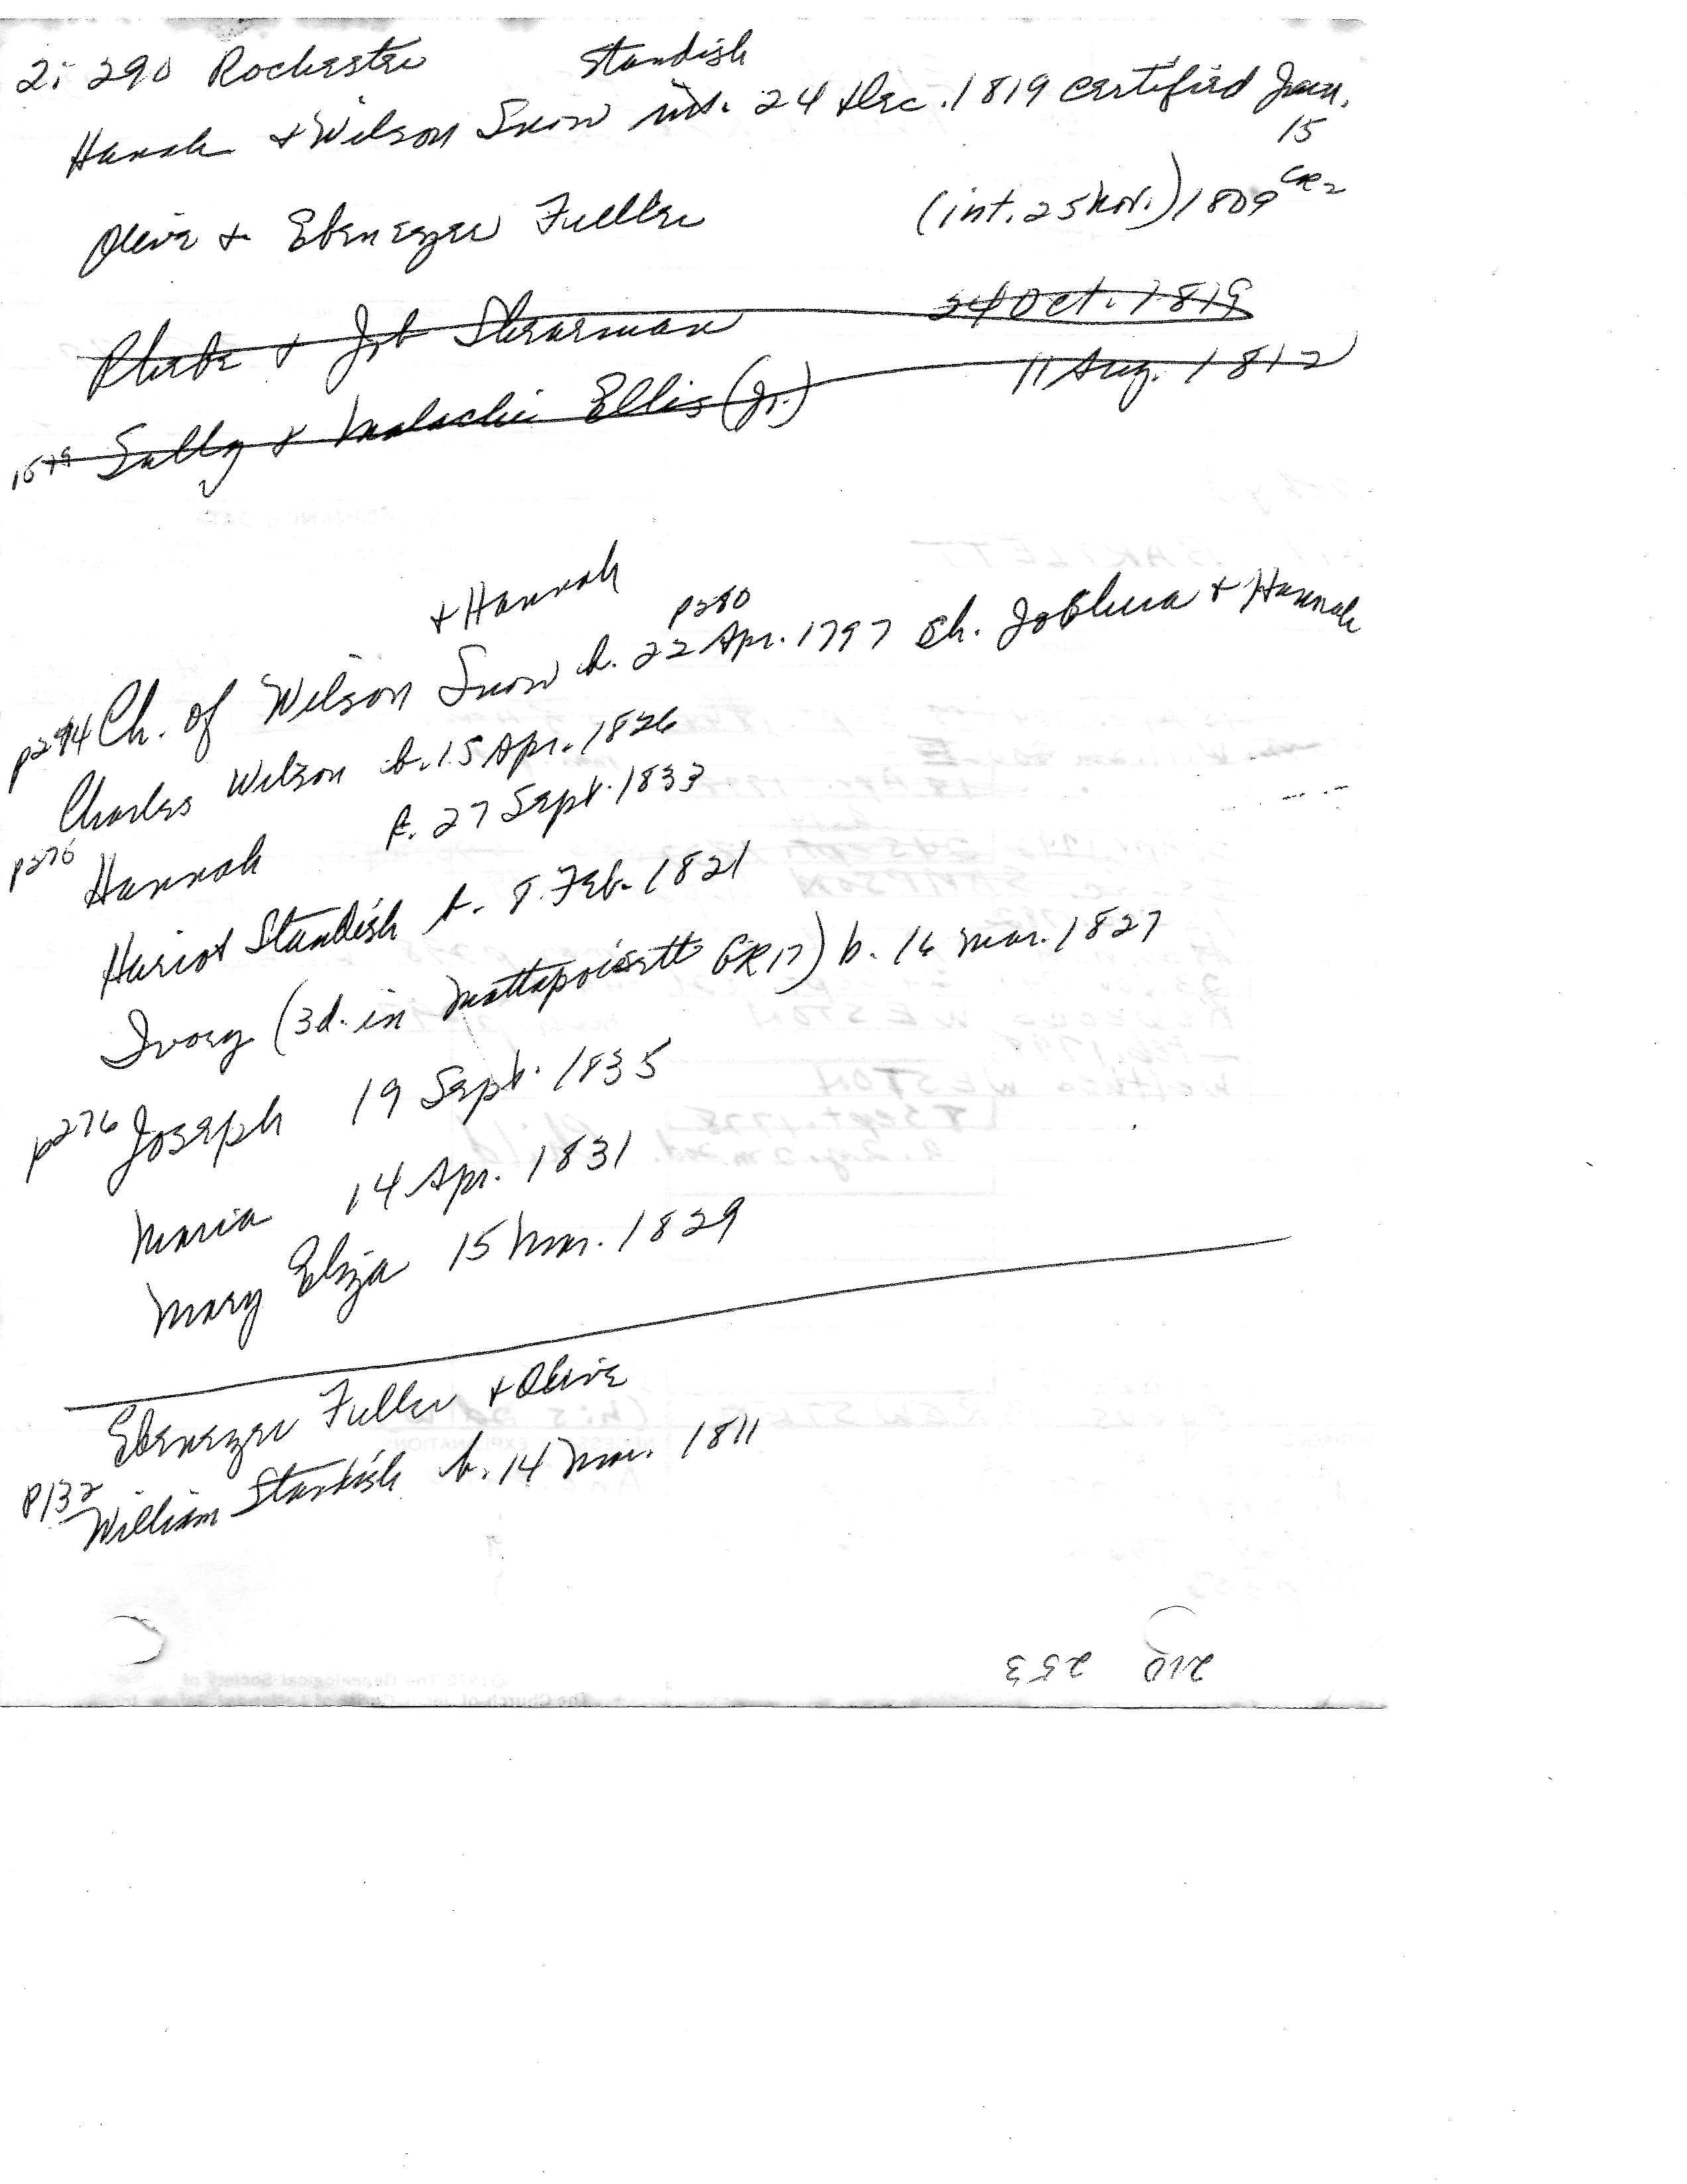 2: 290 Rochester Standish
Hanah + Wilson Snow int. 24 Dec. 1819 certified Jan. 15
Olive + Ebenezer Fuller (int. 25 Nov.) 1809 CR2
Phebe + Job Shearman 24 Oct. 1819
Sally + Malachi Ellis (Jr.) 11 Aug. 1812
+ Hannah
p294 Ch. of Wilson Snow b. 22 Apr. 1797 p280 ch. Joshua + Hannah
Charles Wilson b. 15 Apr. 1826
p276 Hannah b. 27 Sept. 1833
Hariot Standish b. 8 Feb. 1821
Ivory (3d. in Mattapoisett GR17) b. 16 Mar. 1827
p276 Joseph 19 Sept. 1835
Maria 14 Apr. 1831
Mary Eliza 15 Mar. 1829
Ebenezer Fuller + Olive
p132 William Standish b. 14 Mar. 1811
210 253